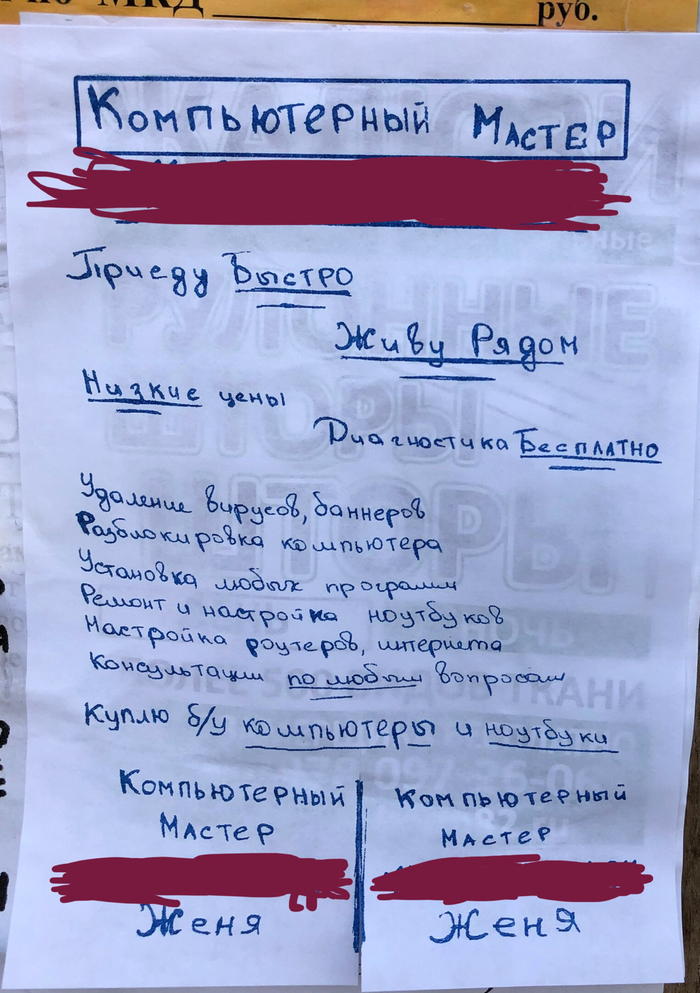 МКД руб.
Компьютерный Мастер
Приеду Быстро
Живу Рядом
Низкие цены
Диагностика Бесплатно
Удаление вирусов, баннеров
Разблокировка компьютера
Установка любых программ
Ремонт и настройка ноутбуков
Настройка роутеров, интернета
Консультации по любым вопросам
Куплю б/у компьютеры и ноутбуки
Компьютерный
Мастер
Женя
Компьютерный
Мастер
Женя